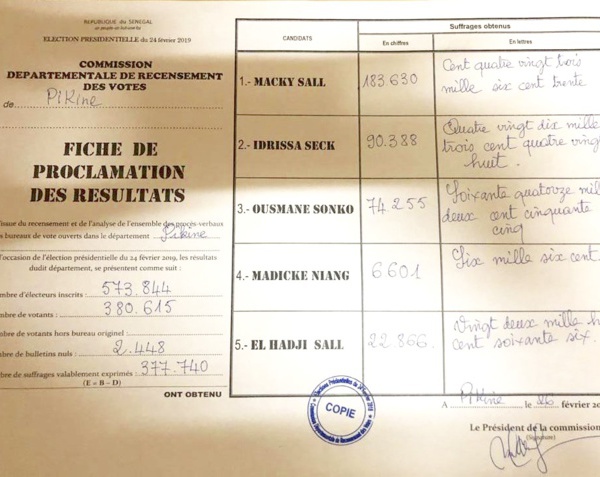 REPUBLIQUE du SENEGAL
ELECTION PRESIDENTIELLE du 24 février 2019
COMMISSION
DEPARTEMENTALE DE RECENSEMENT
DES VOTES
de Pikine
FICHE DE
PROCLAMATION
DES RESULTATS
issue du recensement et de l'analyse de l'ensemble des procès-verbaux
bureaux de vote ouverts dans le département Pikine
l'occasion de l'élection présidentielle du 24 février 2019, les résultats
dudit département, se présentent comme suit :
mbre d'électeurs inscrits : 573.844
mbre de votants : 380.615
mbre de votants hors bureau originel :
mbre de bulletins nuls : 2.448
mbre de suffrages valablement exprimés : 377.740
(E = B – D)
ONT OBTENU
CANDIDATS
Suffrages obtenus
En chiffres
En lettres
1.- MACKY SALL
183.630
Cent quatre vingt trois
mille six cent trente
2.- IDRISSA SECK
90.388
Quatre vingt dix mille
trois cent quatre ving
huit.
3.- OUSMANE SONKO
74 255
Soixante quatorze mil
deux cent cinquante
cinq
4.- MADICKE NIANG
6.601
Six mille six cent
5.- EL HADJI SALL
22.866.
Vingt deux mille h
cent soixante six.
COPIE
A Pikine le 26 février 20
Le Président de la commission
(Signature)